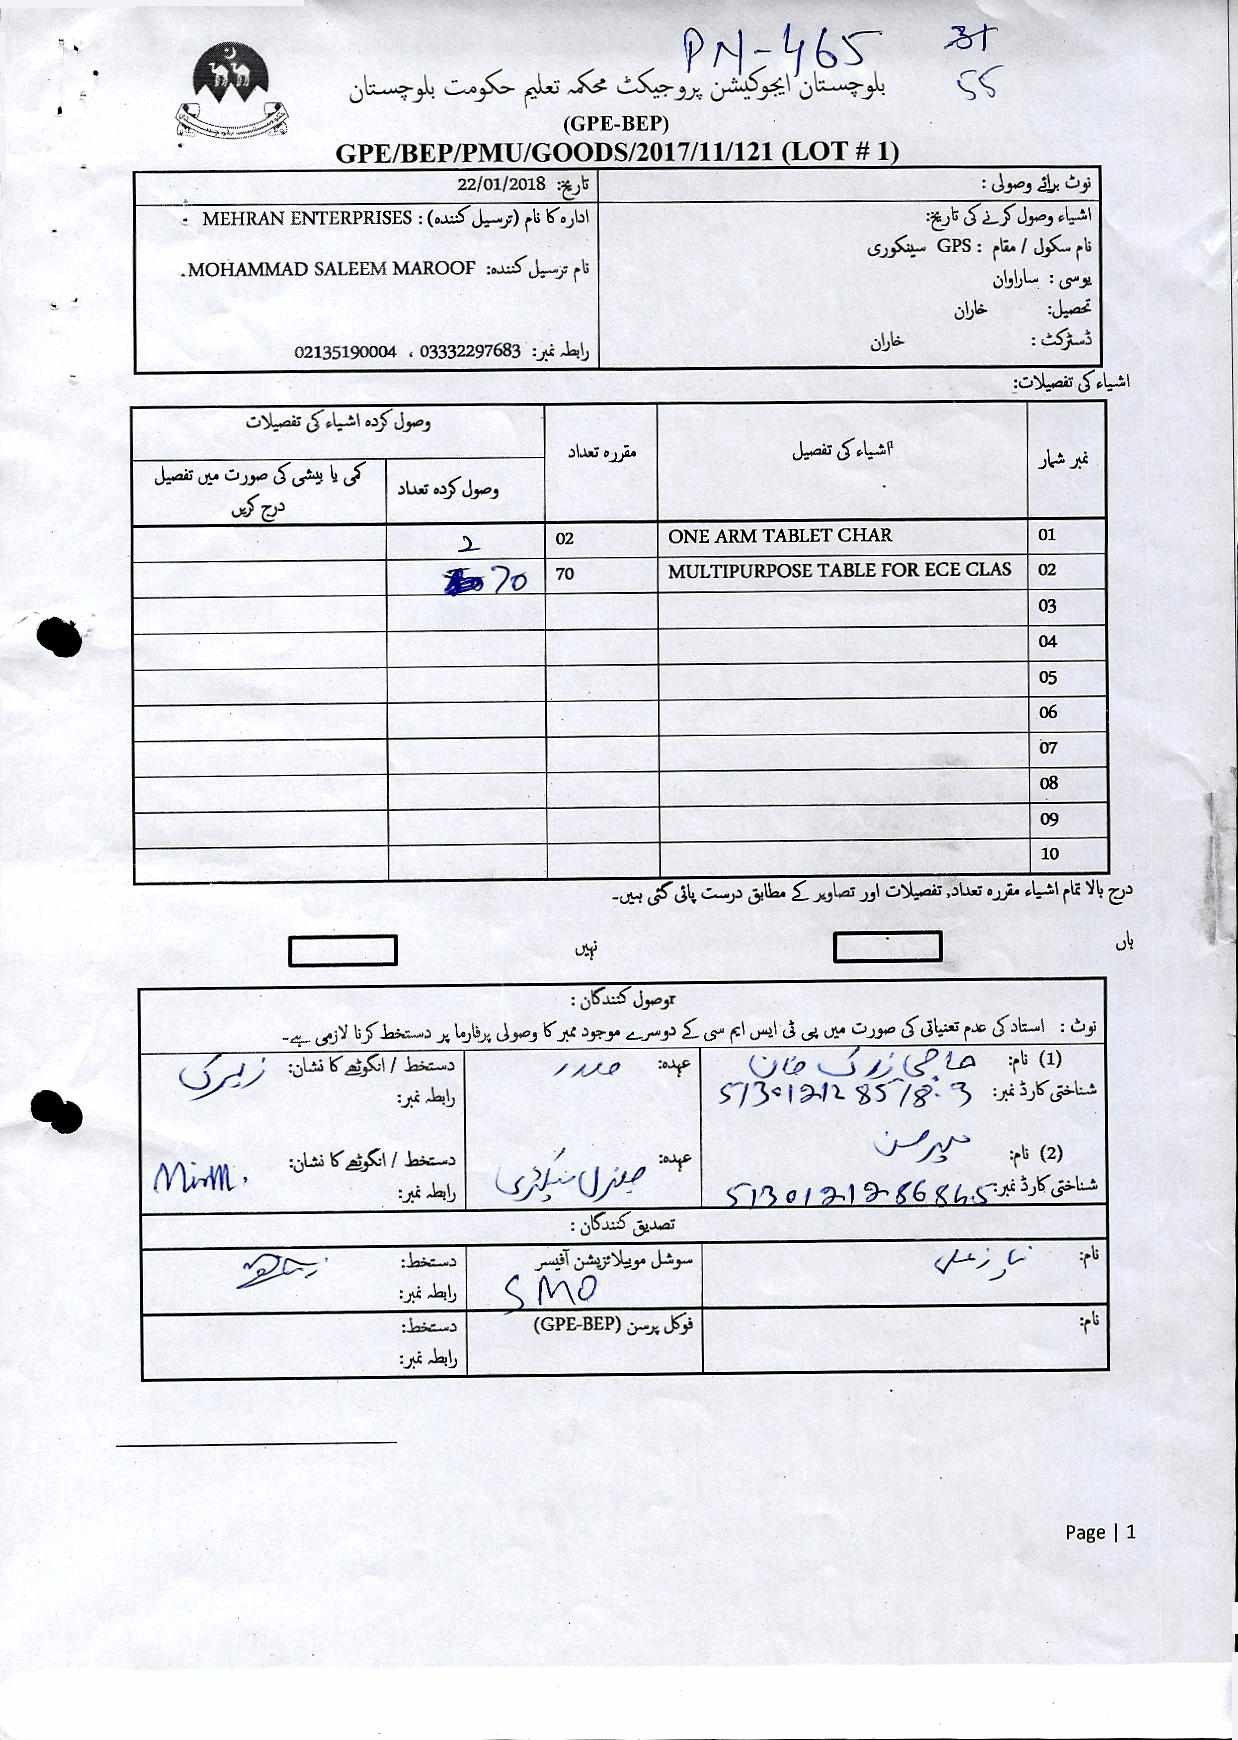 PN-465
55
بلوچستان ایجوکیشن پروجیکٹ محکمہ تعلیم حکومت بلوچستان
(GPE-BEP)
GPE/BEP/PMU/GOODS/2017/11/121 (LOT # 1)
نوٹ برائے وصولی :
اشیاء وصول کرنے کی تاریخ:
نام سکول / مقام : GPS سینکوری
یوسی : ساراوان
تحصیل: خاران
ڈسٹرکٹ : خاران
تاریخ: 22/01/2018
ادارہ کا نام (ترسیل کنندہ) : MEHRAN ENTERPRISES
نام ترسیل کنندہ: MOHAMMAD SALEEM MAROOF.
رابطہ نمبر: 03332297683 ، 02135190004
اشیاء کی تفصیلات:
نمبر شمار اشیاء کی تفصیل مقررہ تعداد وصول کردہ اشیاء کی تفصیلات
وصول کردہ تعداد کمی یا بیشی کی صورت میں تفصیل درج کریں
01 ONE ARM TABLET CHAR 02 2
02 MULTIPURPOSE TABLE FOR ECE CLAS 70 70
03
04
05
06
07
08
09
10
درج بالا تمام اشیاء مقررہ تعداد, تفصیلات اور تصاویر کے مطابق درست پائی گئی ہیں۔
ہاں نہیں
وصول کنندگان :
نوٹ : استاد کی عدم تعنیاتی کی صورت میں پی ٹی ایس ایم سی کے دوسرے موجود ممبر کا وصولی پرفارما پر دستخط کرنا لازمی ہے۔
(1) نام: حاجی زرک خان عہدہ: صدر دستخط / انگوٹھے کا نشان: زیرک
شناختی کارڈ نمبر: رابطہ نمبر:
(2) نام: میر حسن عہدہ: جنرل سیکرٹری دستخط / انگوٹھے کا نشان:
شناختی کارڈ نمبر: رابطہ نمبر:
تصدیق کنندگان :
نام: سوشل موبیلائزیشن آفیسر دستخط:
SMO رابطہ نمبر:
نام: فوکل پرسن (GPE-BEP) دستخط:
رابطہ نمبر:
Page | 1